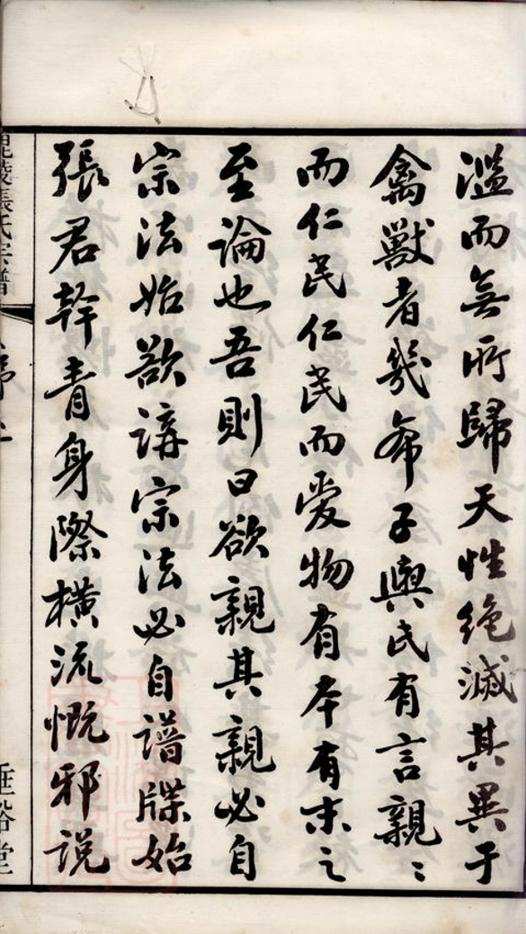 濫而無所歸天性絕滅其異于
禽獸者幾希子輿氏有言親〻
而仁民仁民而愛物有本有末之
至論也吾則曰欲親其親必自
宗法始欲講宗法必自譜牒始
張君幹青身際橫流慨邪說
毘陵張氏宗譜
垂裕堂